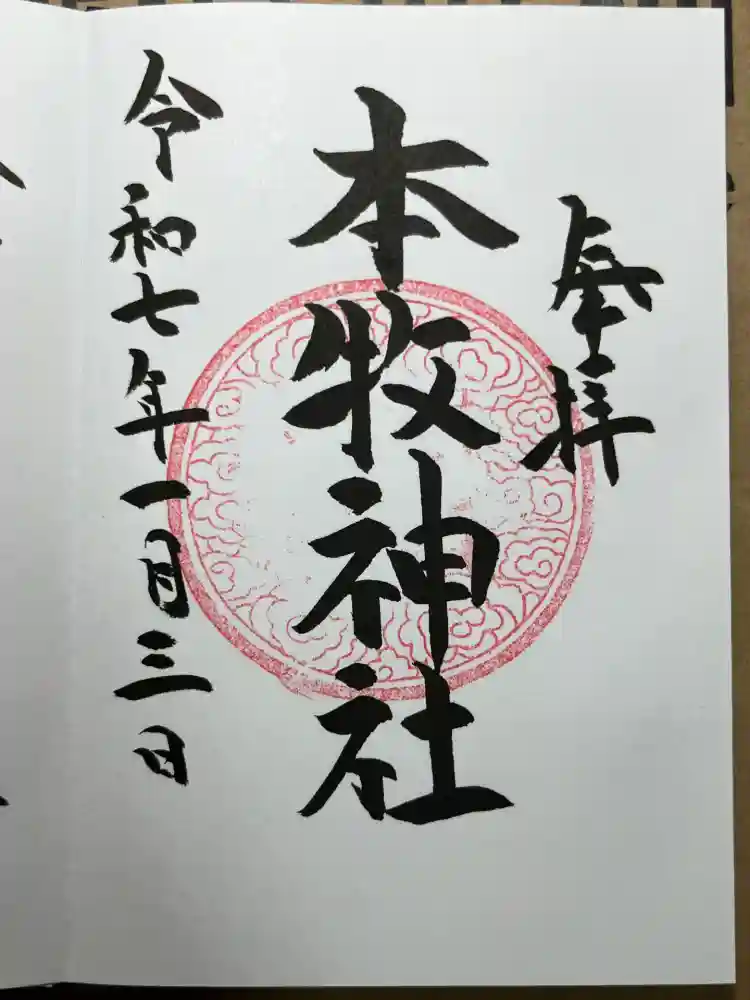 奉拝
本牧神社
令和七年一月三日